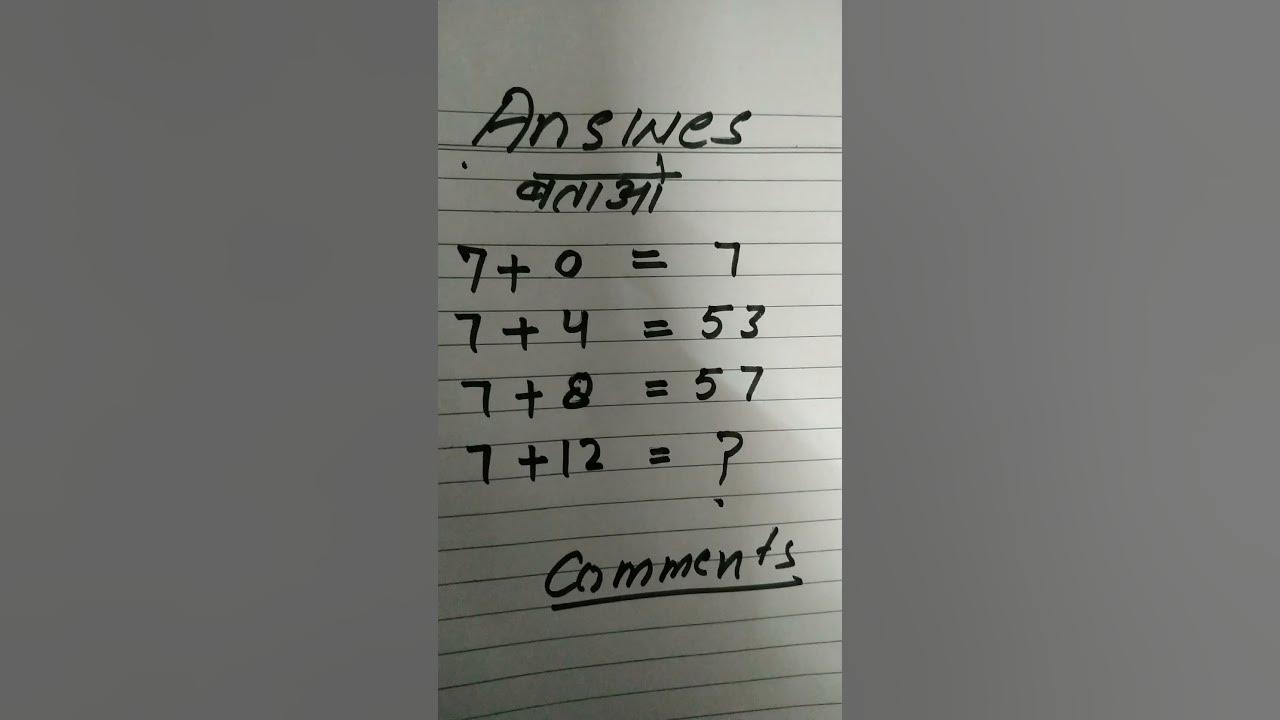 Ansines
बताओ
7 + 0 = 7
7 + 4 = 53
7 + 8 = 57
7 + 12 = ?
Comments